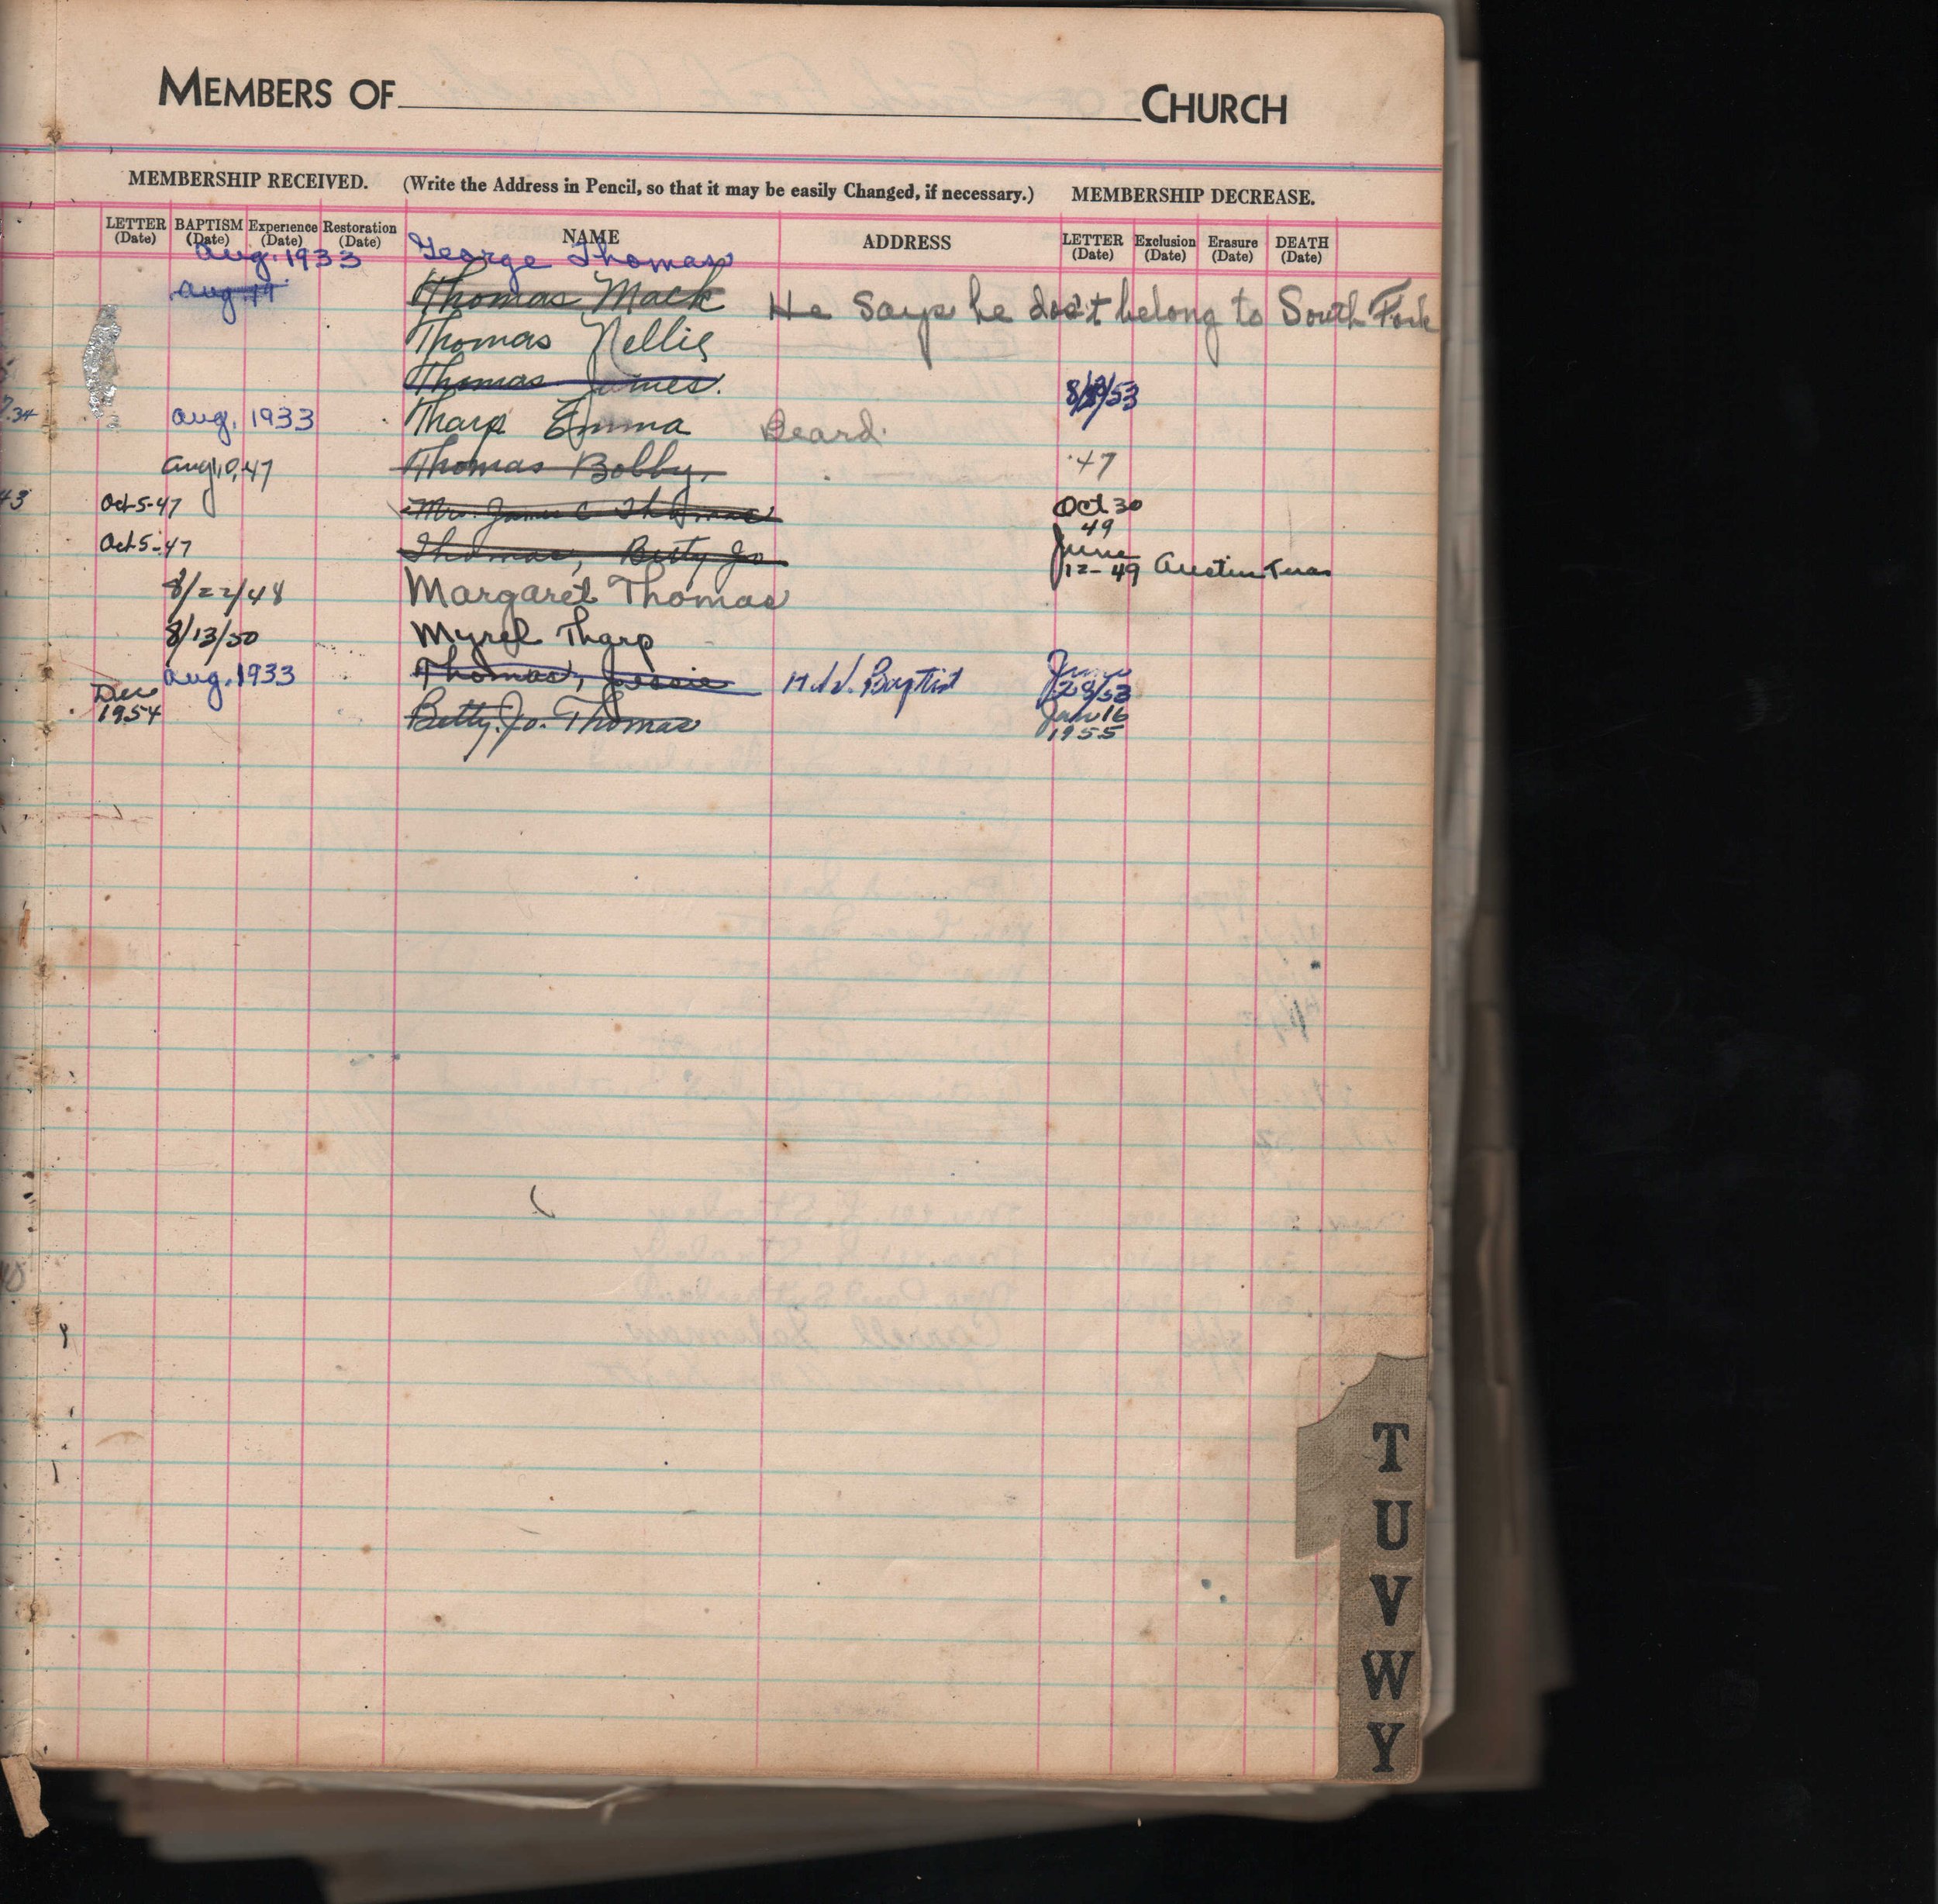 MEMBERS OF CHURCH
MEMBERSHIP RECEIVED. (Write the Address in Pencil, so that it may be easily Changed, if necessary.) MEMBERSHIP DECREASE.
LETTER (Date) BAPTISM (Date) Experience (Date) Restoration (Date) NAME ADDRESS LETTER (Date) Exclusion (Date) Erasure (Date) DEATH (Date)
Aug. 1933 George Thomas
Aug. 11 Thomas Mack He says he dos't belong to South Fork
Thomas Nellie
Thomas James. 53
Aug. 1933 Tharp Emma Beard
Aug 10, 47 Thomas Bobby. 47
Oct-5-47 Mrs. James C Thomas Oct 30 49
Oct 5-47 Thomas, Betty Jo June 12-49 Austin Texas
8/22/48 Margaret Thomas
8/13/50 Myrel Tharp
Aug. 1933 Thomas, Jessie Baptist June 28/53
Dec 1954 Betty Jo. Thomas Jan 16 1955
T
U
V
W
Y